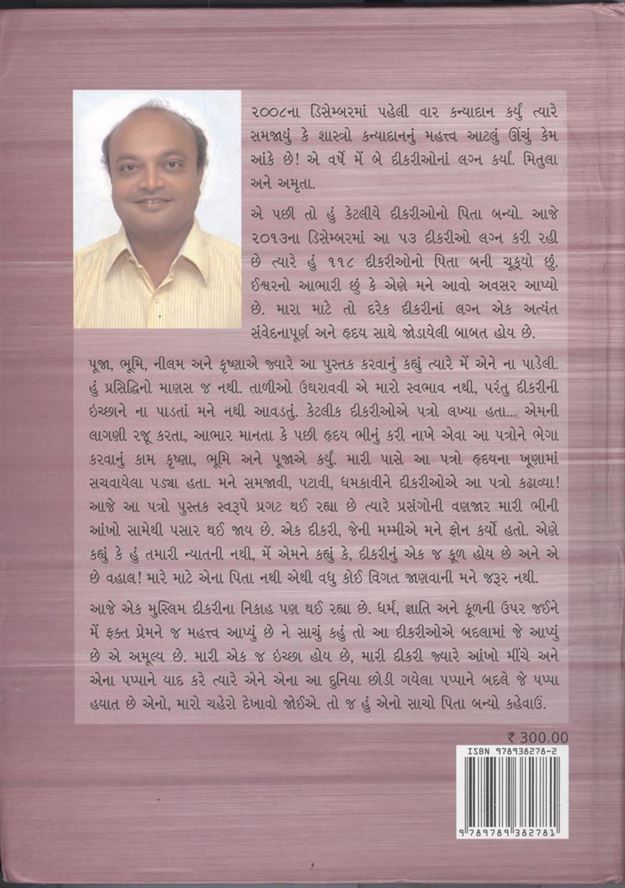 ૨૦૦૮ના ડિસેમ્બરમાં પહેલી વાર કન્યાદાન કર્યું ત્યારે
સમજાયું કે શાસ્ત્રો કન્યાદાનનું મહત્ત્વ આટલું ઊંચું કેમ
આંકે છે! એ વર્ષે મેં બે દીકરીઓનાં લગ્ન કર્યાં. મિતુલા
અને અમૃતા.
એ પછી તો હું કેટલીયે દીકરીઓનો પિતા બન્યો. આજે
૨૦૧૩ના ડિસેમ્બરમાં આ ૫૩ દીકરીઓ લગ્ન કરી રહી
છે ત્યારે હું ૧૧૮ દીકરીઓનો પિતા બની ચૂક્યો છું.
ઈશ્વરનો આભારી છું કે એણે મને આવો અવસર આપ્યો
છે. મારા માટે તો દરેક દીકરીનાં લગ્ન એક અત્યંત
સંવેદનાપૂર્ણ અને હૃદય સાથે જોડાયેલી બાબત હોય છે.
પૂજા, ભૂમિ, નીલમ અને કૃષ્ણાએ જ્યારે આ પુસ્તક કરવાનું કહ્યું ત્યારે મેં એને ના પાડેલી.
હું પ્રસિદ્ધિનો માણસ જ નથી. તાળીઓ ઉઘરાવવી એ મારો સ્વભાવ નથી, પરંતુ દીકરીની
ઇચ્છાને ના પાડતાં મને નથી આવડતું. કેટલીક દીકરીઓએ પત્રો લખ્યા હતા... એમની
લાગણી રજૂ કરતા, આભાર માનતા કે પછી હૃદય ભીનું કરી નાખે એવા આ પત્રોને ભેગા
કરવાનું કામ કૃષ્ણા, ભૂમિ અને પૂજાએ કર્યું. મારી પાસે આ પત્રો હૃદયના ખૂણામાં
સચવાયેલા પડ્યા હતા. મને સમજાવી, પટાવી, ધમકાવીને દીકરીઓએ આ પત્રો કઢાવ્યા!
આજે આ પત્રો પુસ્તક સ્વરૂપે પ્રગટ થઈ રહ્યા છે ત્યારે પ્રસંગોની વણજાર મારી ભીની
આંખો સામેથી પસાર થઈ જાય છે. એક દીકરી, જેની મમ્મીએ મને ફોન કર્યો હતો. એણે
કહ્યું કે હું તમારી ન્યાતની નથી, મેં એમને કહ્યું કે, દીકરીનું એક જ કૂળ હોય છે અને એ
છે વહાલ! મારે માટે એના પિતા નથી એથી વધુ કોઈ વિગત જાણવાની મને જરૂર નથી.
આજે એક મુસ્લિમ દીકરીના નિકાહ પણ થઈ રહ્યા છે. ધર્મ, જ્ઞાતિ અને કૂળની ઉપર જઈને
મેં ફક્ત પ્રેમને જ મહત્ત્વ આપ્યું છે ને સાચું કહું તો આ દીકરીઓએ બદલામાં જે આપ્યું
છે એ અમૂલ્ય છે. મારી એક જ ઇચ્છા હોય છે, મારી દીકરી જ્યારે આંખો મીંચે અને
એના પપ્પાને યાદ કરે ત્યારે એને એના આ દુનિયા છોડી ગયેલા પપ્પાને બદલે જે પપ્પા
હયાત છે એનો, મારો ચહેરો દેખાવો જોઈએ. તો જ હું એનો સાચો પિતા બન્યો કહેવાઉં.
₹ 300.00
ISBN 978938278-2
9789789382781